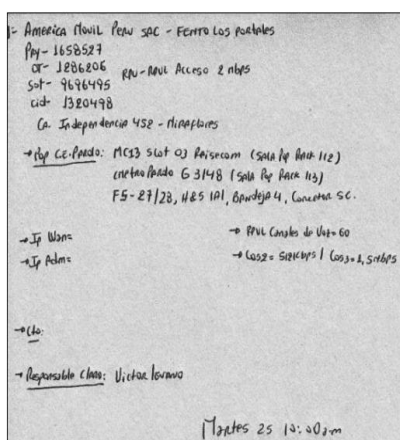 1- America Movil Peru SAC - Femto Los Portales
Pry- 1658527
OT- 1286206 RPV-RPVL Acceso 2 mbps
Sot- 9696495
cid- 1320498
Ca. Independencia 452 - Miraflores
→ Pop C.C. Pardo: MC13 Slot 03 Raisecom (Sala Pop Rack 112)
metro Pardo G 3/48 (Sala Pop Rack 113)
FS-27/28, H&S 1A1, Bandeja 4, Conector SC.
→ Ip Wan= → RPVL Canales de Voz= 60
→ Ip Adm= → Cos2= 512Kbps / Cos3= 1,5Mbps
→ Cto:
→ Responsable Claro: Victor
Martes 25 10:00am